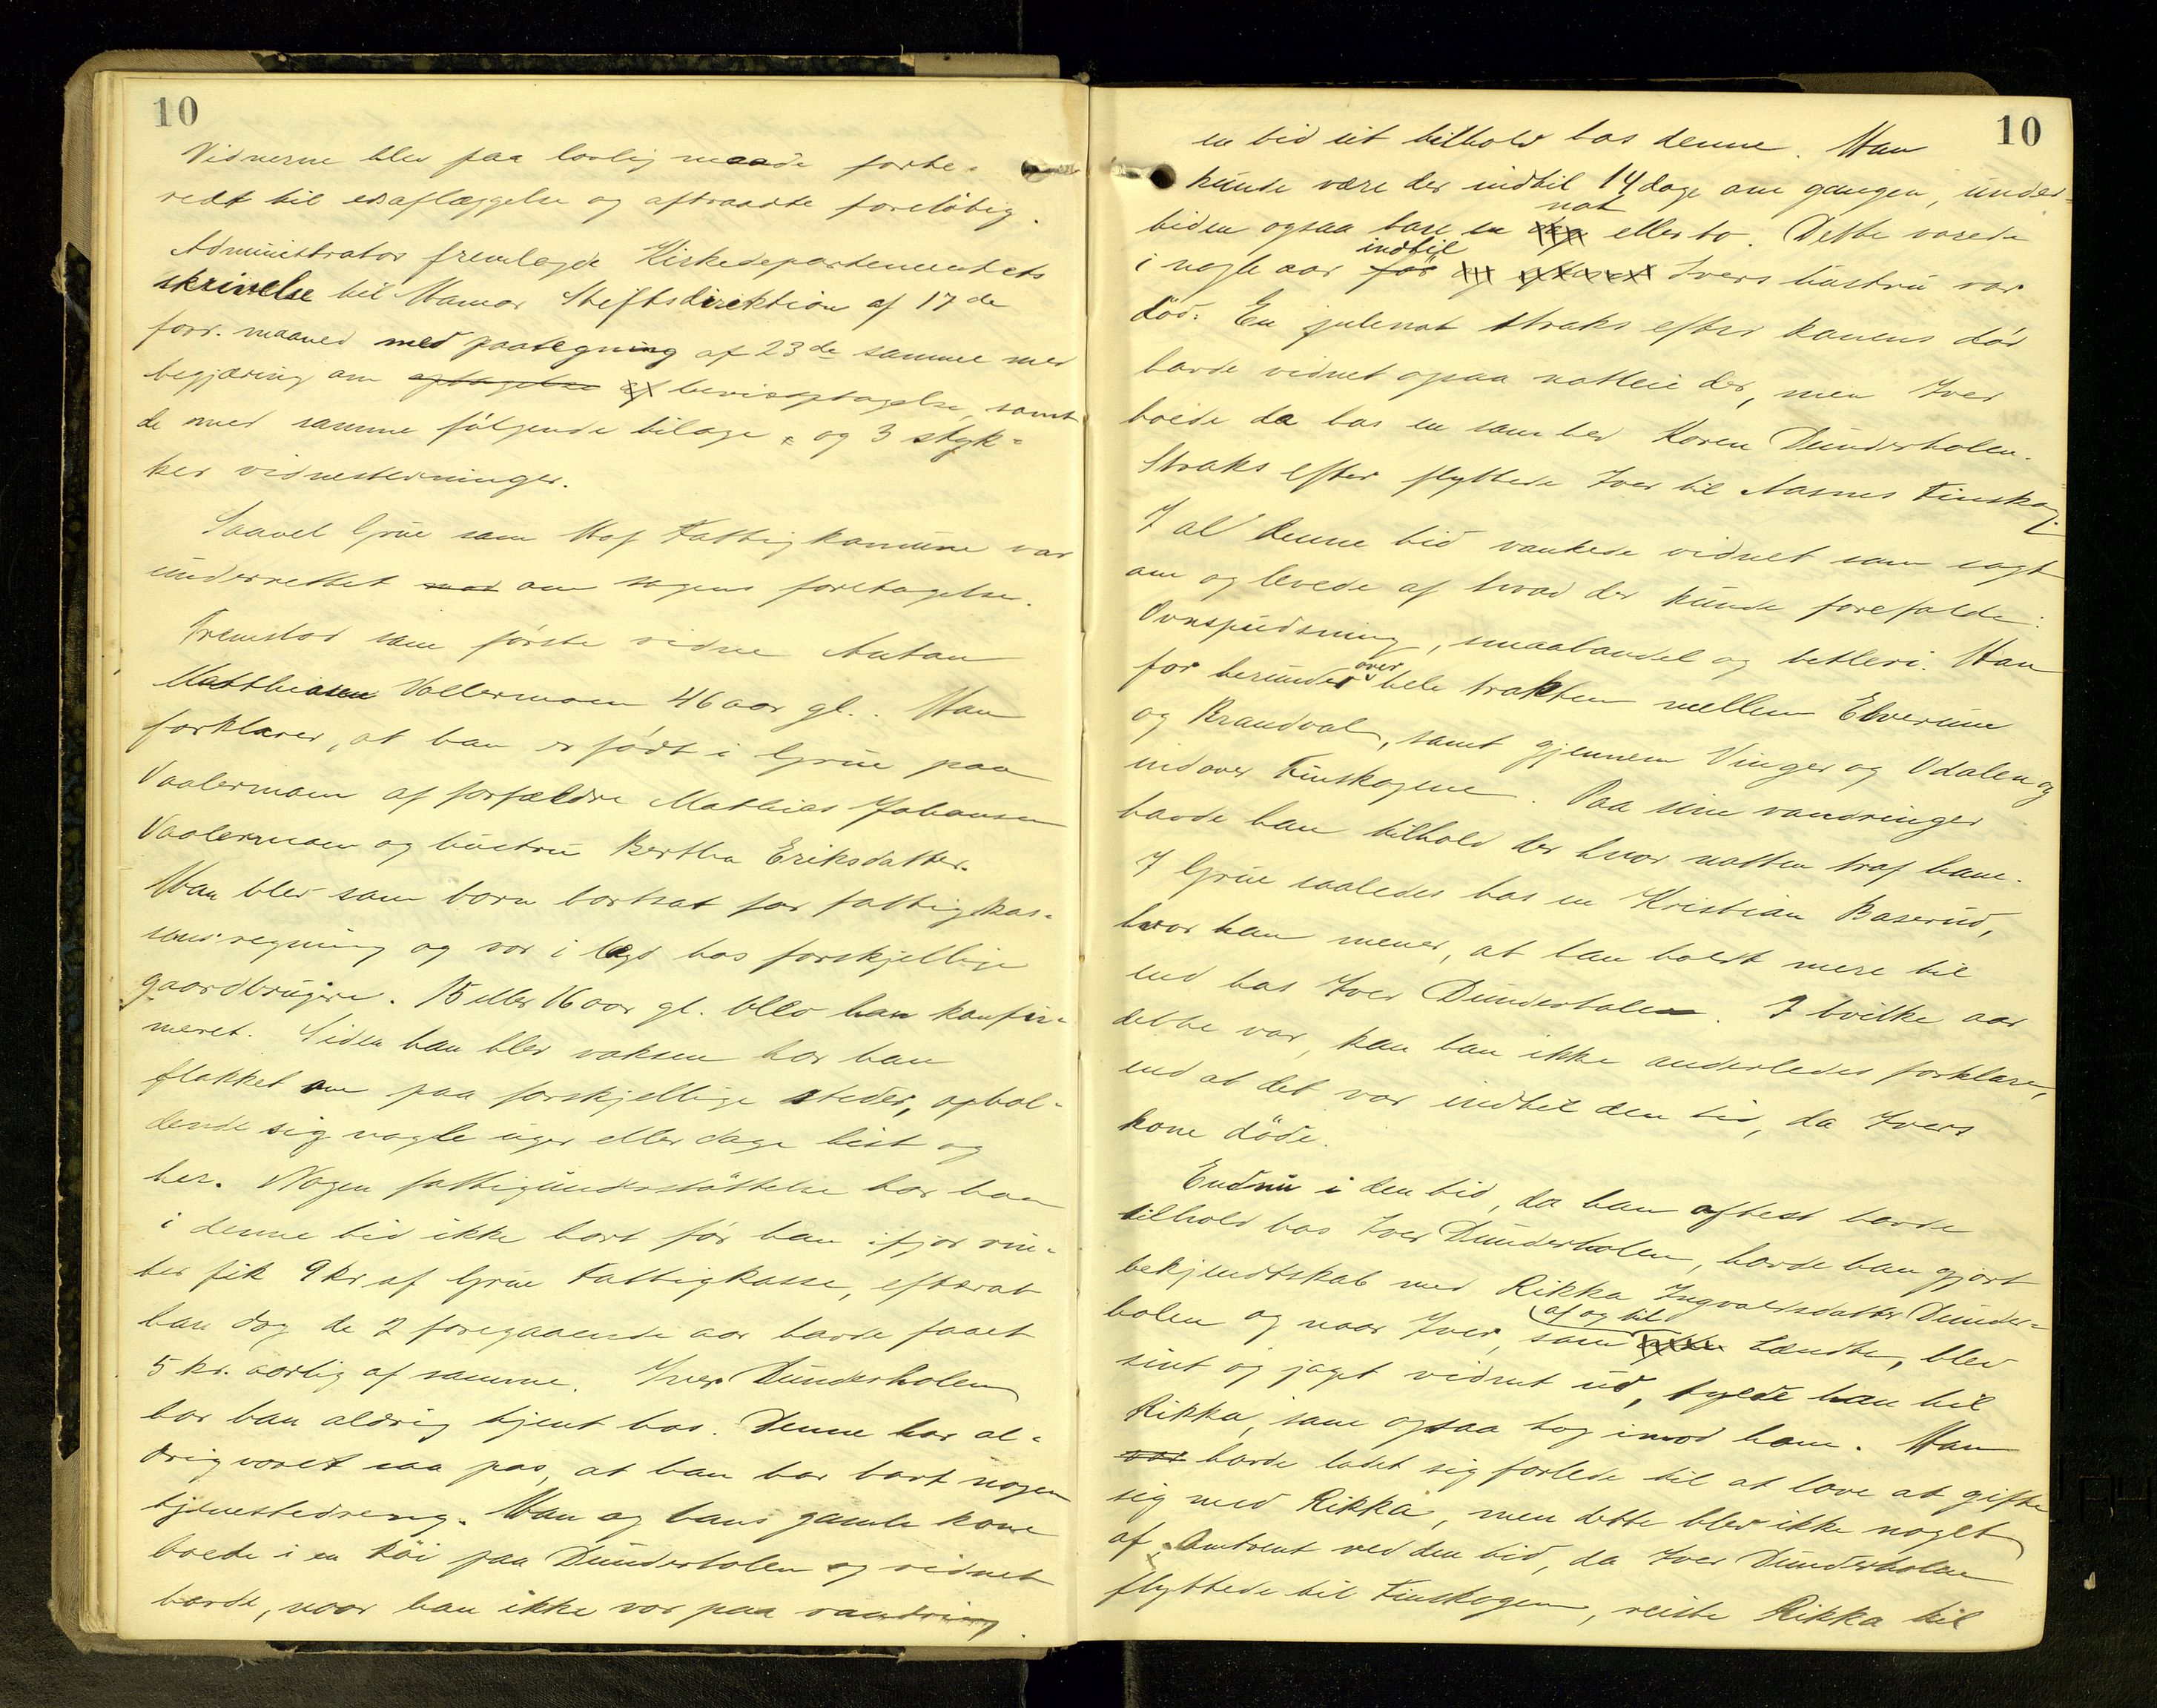 10
Vidnerne blev paa lovlig maade forbe-
redt til edsaflæggelse og aftraadte foreløbig.
Administrator fremlagde Kirkedepartementets
skrivelse til Hamar Stiftsdirektion af 17de
forr. maaned med paategning af 23de samme med
begjæring om optagelse af bevisoptagelse, samt
de med samme følgende bilage, og 3 styk-
ker vidnestevninger.
Saavel Grue som Hof Fattigkommune var
underrettet med om sagens foretagelse.
Fremstod som første vidne Anton
Matthiasen Vollermoen 46 aar gl.. Han
forklarer, at han er født i Grue paa
Vaalermoen af forfældre Mathias Johansen
Vaalermoen og hustru Bertha Eriksdatter.
Han blev som barn bortsat for fattigkas-
sens regning og var i lægd hos forskjellige
gaardbrugere. 15 eller 16 aar gl. blev han konfir-
meret. Siden han blev voksen har han
flakket om paa forskjellige steder, ophol-
dende sig nogle uger eller dage hist og
her. Nogen fattigunderstøttelse har han
i denne tid ikke havt før han ifjor vin-
ter fik 9 kr af Grue Fattigkasse, efterat
han dog de 2 foregaaende aar havde faaet
5 kr. aarlig af samme. Iver Dunderholen
har han aldrig tjent hos. Denne har al-
drig været saa pas, at han har havt nogen
tjenestedreng. Han og hans gamle kone
boede i en köi paa Dunderholen og vidnet
havde, naar han ikke var paa vandring
10
en tid sit tilhold hos denne. Han
kunde være der indtil 14 dage om gangen, under-
tiden ogsaa bare en nat eller to. Dette varede
i nogle aar før indtil Ivers hustru var
död. En julenat straks efter konens död
havde vidnet ogsaa natteleie der, men Iver
boede da hos en som hed Karen Dunderholen.
Straks efter flyttede Iver til Aasnes Finskog.
I al denne tid vankede vidnet som sagt
om og levede af hvad der kunde forefalde:
Ovnspudsning, smaahandel og betleri. Han
for herunder over hele trakten mellem Elverum
og Brandval, samt gjennem Vinger og Odalen og
indover Finskogene. Paa sine vandringer
havde han tilhold der hvor natten traf ham.
I Grue saaledes hos en Kristian Baserud,
hvor han mener, at han holdt mere til
end hos Iver Dunderholen. I hvilke aar
dette var, kan han ikke anderledes forklare,
end at det var indtil den tid, da Ivers
kone døde.
Endnu i den tid, da han oftest havde
tilhold hos Iver Dunderholen, havde han gjort
bekjendtskab med Rikka Ingvaldsdatter Dunder-
holen og naar Iver, som af og til hændte, blev
sint og jaget vidnet ud, tyede han til
Rikka, som ogsaa tog imod ham. Han
var havde ladet sig forlede til at love at gifte
sig med Rikka, men dette blev ikke noget
af. Omtrent ved den tid, da Iver Dunderholen
flyttede til Finskogen, reiste Rikka til